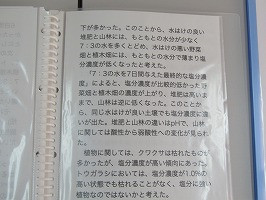 下が多かった。このことから、水はけの良い
堆肥と山林には、もともとの水分が少なく
7：3の水を多くとどめ、水はけの悪い野菜
畑と植木畑には、もともとの水分で薄まり塩
分濃度が低くなったと考えた。
「7：3の水を7日間与えた最終的な塩分濃
度」によると、塩分濃度が出比較的低かった野
菜畑と植木畑の濃度が上がり、堆肥は高いま
まで、山林は逆に低くなった。このことか
ら、同じ水はけが良い土壌でも塩分濃度に違
いが出た。堆肥と山林の違いはpHで、山林
に関しては酸性から弱酸性への変化が見られ
た。
植物に関しては、クワクサは枯れたものが
多かったが、塩分濃度が高い傾向にあった。
トウガラシにおいては、塩分濃度が1.0%の
高い状態でも枯れることがなく、塩分に強い
植物なのではないかと考えた。